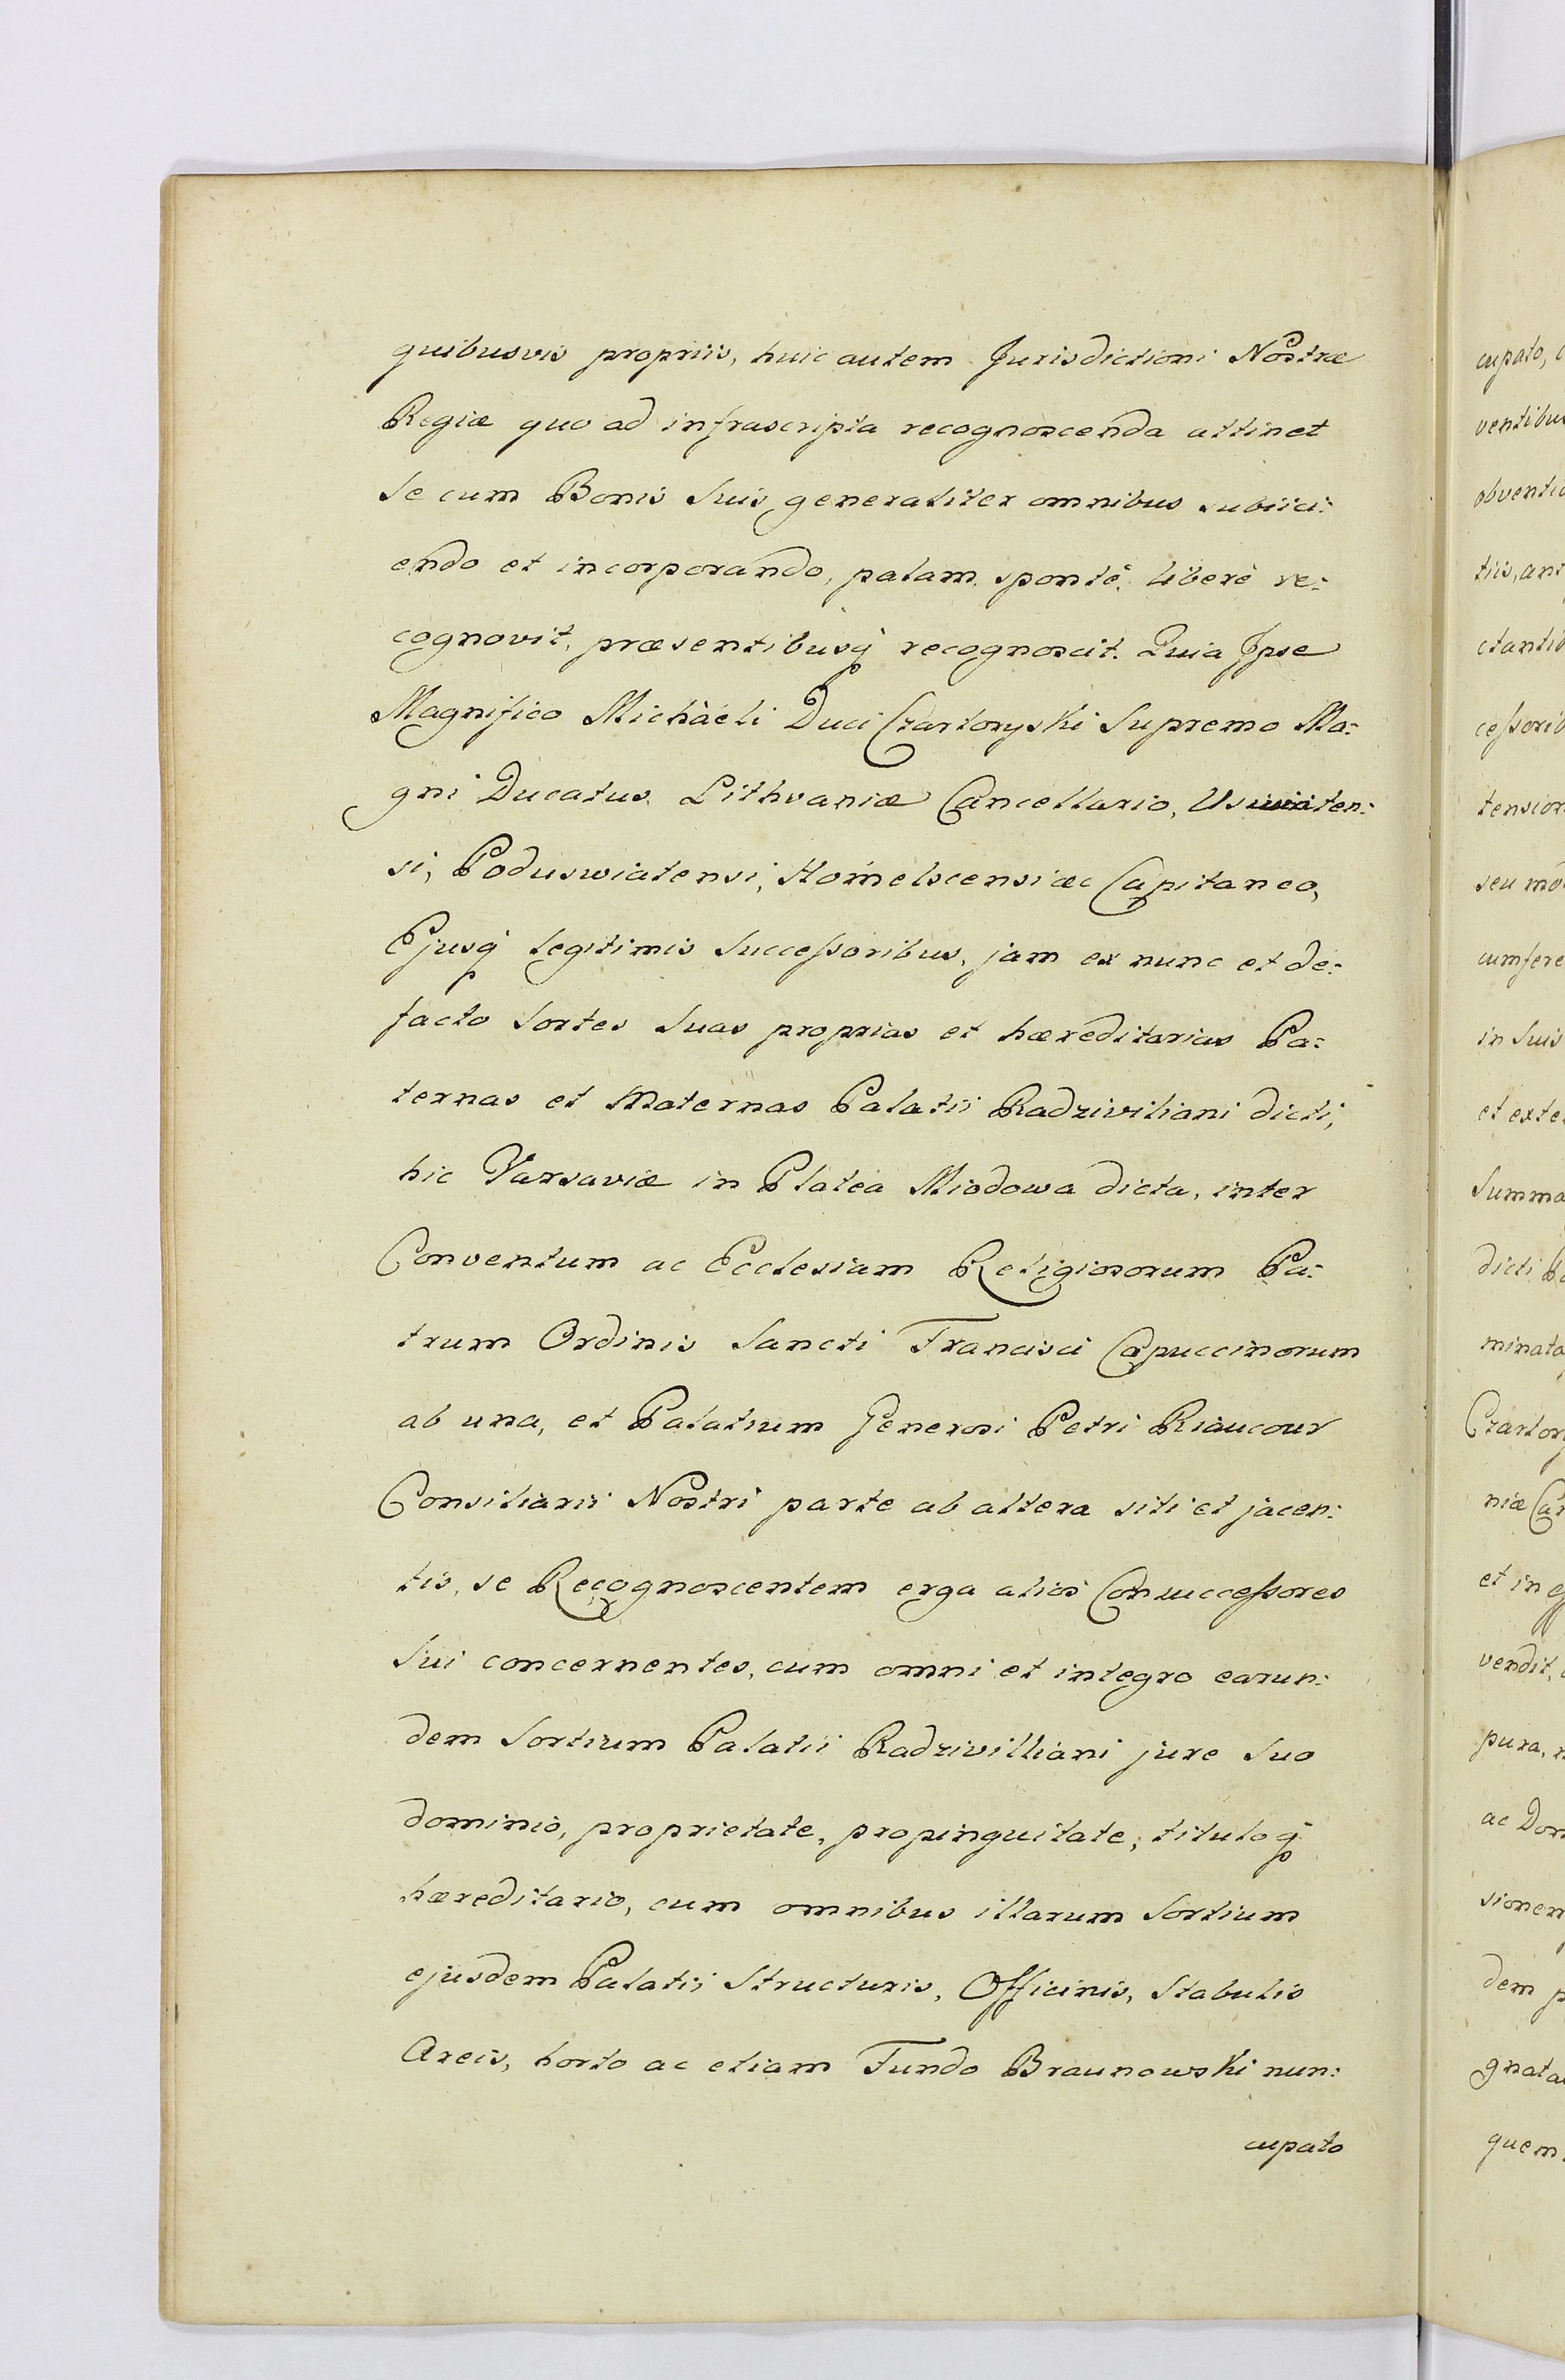 quibusvis propriis, huic autem Jurisdictioni Nostræ
Regiæ quo ad infrascripta recognoscenda attinet
se cum Bonis Suis generaliter omnibus subiici:
endo et incorporando, palam, sponté, liberè re:
cognovit, præsentibusq́ recognoscit. Quia Ipse
Magnifico Michàeli Duci Czartoryski Supremo Ma:
gni Ducatus Lithvaniæ Cancellario, Uswiaten:
si, Poduswiatensi, Homelscensiæc Capitaneo,
Ejusq́ legitimis Successoribus, jam ex nunc et de:
facto Sortes Suas proprias et hæreditarias Pa:
ternas et Maternas Palatii Radziviliani dicti,
hic Varsaviæ in Platea Miodowa dicta, inter
Conventum ac Ecclesiam Religiosorum Pa:
trum Ordinis Sancti Francisci Capuccinorum
ab una, et Palatium Generosi Petri Riaucour
Consiliarii Nostri parte ab altera siti et jacen:
tis, se Recognoscentem erga alios Consuccessores
Sui concernentes, cum omni et integro earun:
dem Sortium Palatii Radzivilliani jure Suo
dominio, proprietate, propinguitate, tituloq́
hæreditario, cum omnibus illarum Sortium
ejusdem Palatij Structuris, Officinis, Stabulis
Areis, horto ac etiam Fundo Braunowski nun:
cupato
cupato,
ventibus
obventio
tiis, an
ctantib
cessorib
tension
seu mo
cumfere
in Suis
et exte
Summa
dicti Pa
minata
Czartor
niæ Can
et in
vendit,
pura,
ac Dom
sionem
dem p
gnata
quem